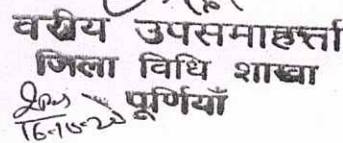 वरीय उपसमाहर्त्ता
जिला विधि शाखा
पूर्णियाँ